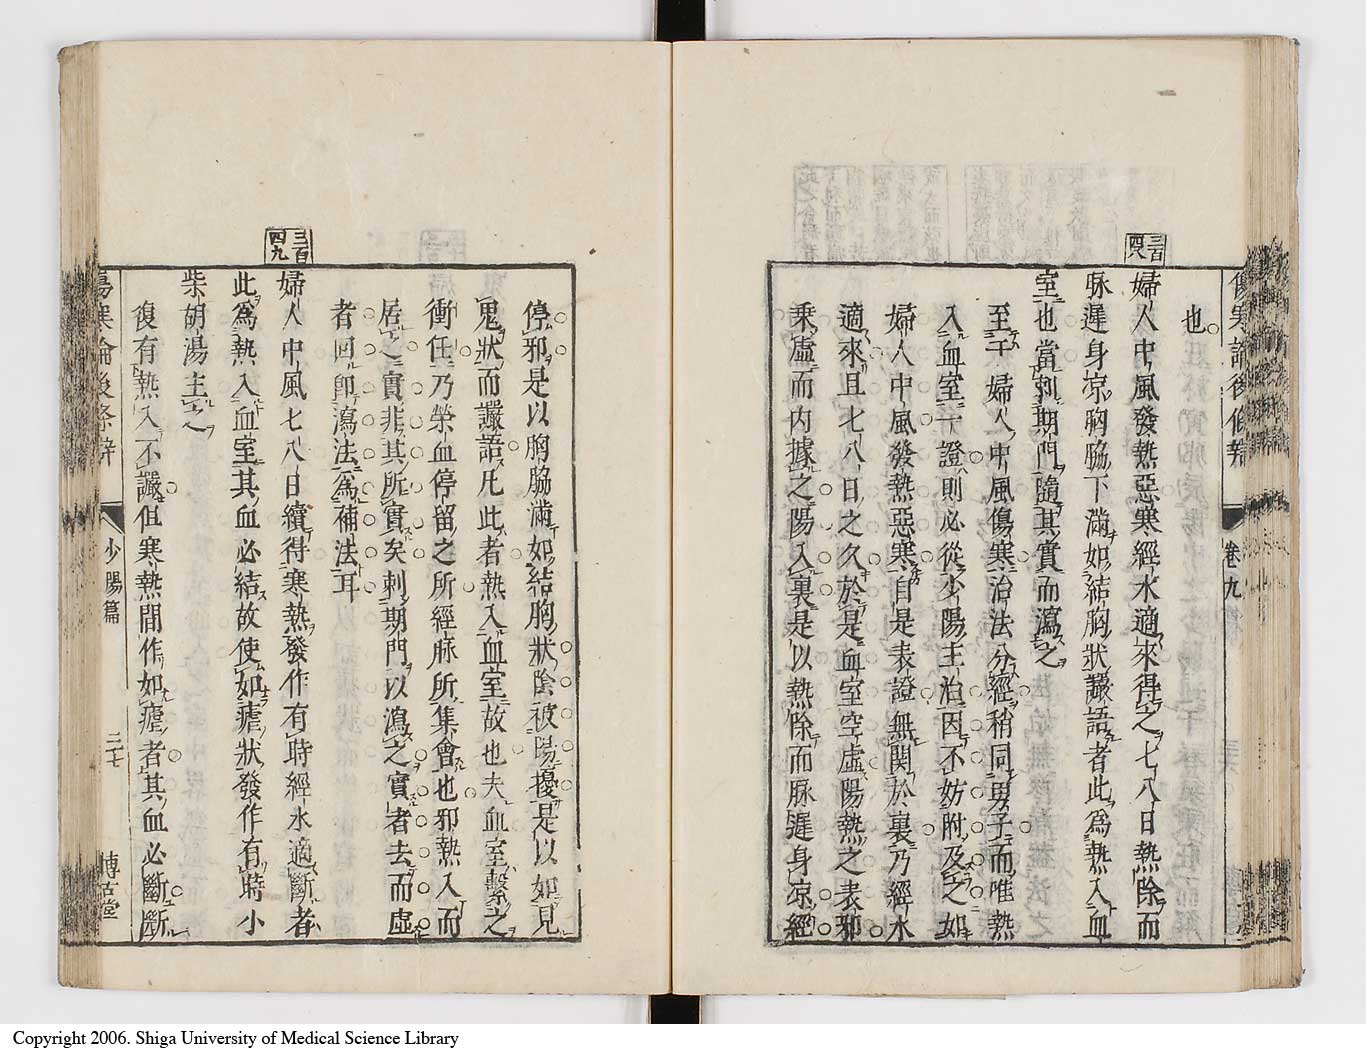 傷寒論後條辨
卷九
三百四八
也
婦人中風發熱惡寒經水適來得之七八日熱除而
脉遲身凉胸脇下滿如結胸狀讝語者此為熱入血
室也當刺期門隨其實而瀉之
至于婦人中風傷寒治法分經稍同男子而唯熱
入血室一證則必從少陽主治因不妨附及之如
婦人中風發熱惡寒自是表證無関於裏乃經水
適來且七八日之久於是血室空虛陽熱之表邪
乘虛而内據之陽入裏是以熱除而脉遲身凉經
停邪是以胸脇滿如結胸狀陰被陽擾是以如見
鬼狀而讝語凡此者熱入血室故也夫血室繫之
衝任乃榮血停留之所經脉所集會也邪熱入而
居之實非其所實矣刺期門以瀉之實者去而虛
者回即瀉法為補法耳
三百四九
婦人中風七八日續得寒熱發作有時經水適斷者
此為熱入血室其血必結故使如瘧狀發作有時小
柴胡湯主之
復有熱入不讝但寒熱間作如瘧者其血必斷斷
傷寒論後條辨
少陽篇
二十七
博古堂
Copyright 2006. Shiga University of Medical Science Library